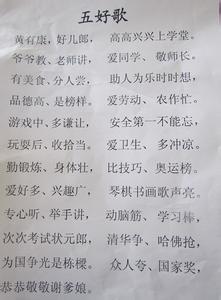 五好歌
黄有康，好儿郎， 高高兴兴上学堂。
爷爷教、老师讲， 爱同学、敬师长。
有美食、分人尝， 助人为乐时时想，
品德高、是榜样。 爱劳动、农作忙。
游戏中、多谦让， 安全第一不能忘，
玩耍后、收拾当。 爱卫生、多冲凉。
勤锻炼、身体壮， 比技巧、奥运榜。
爱好多、兴趣广， 琴棋书画歌声亮。
专心听、举手讲， 动脑筋、学习棒，
次次考试状元郎， 清华争、哈佛抢，
为国争光是栋樑。 众人夸、国家奖，
恭恭敬敬谢爹娘。